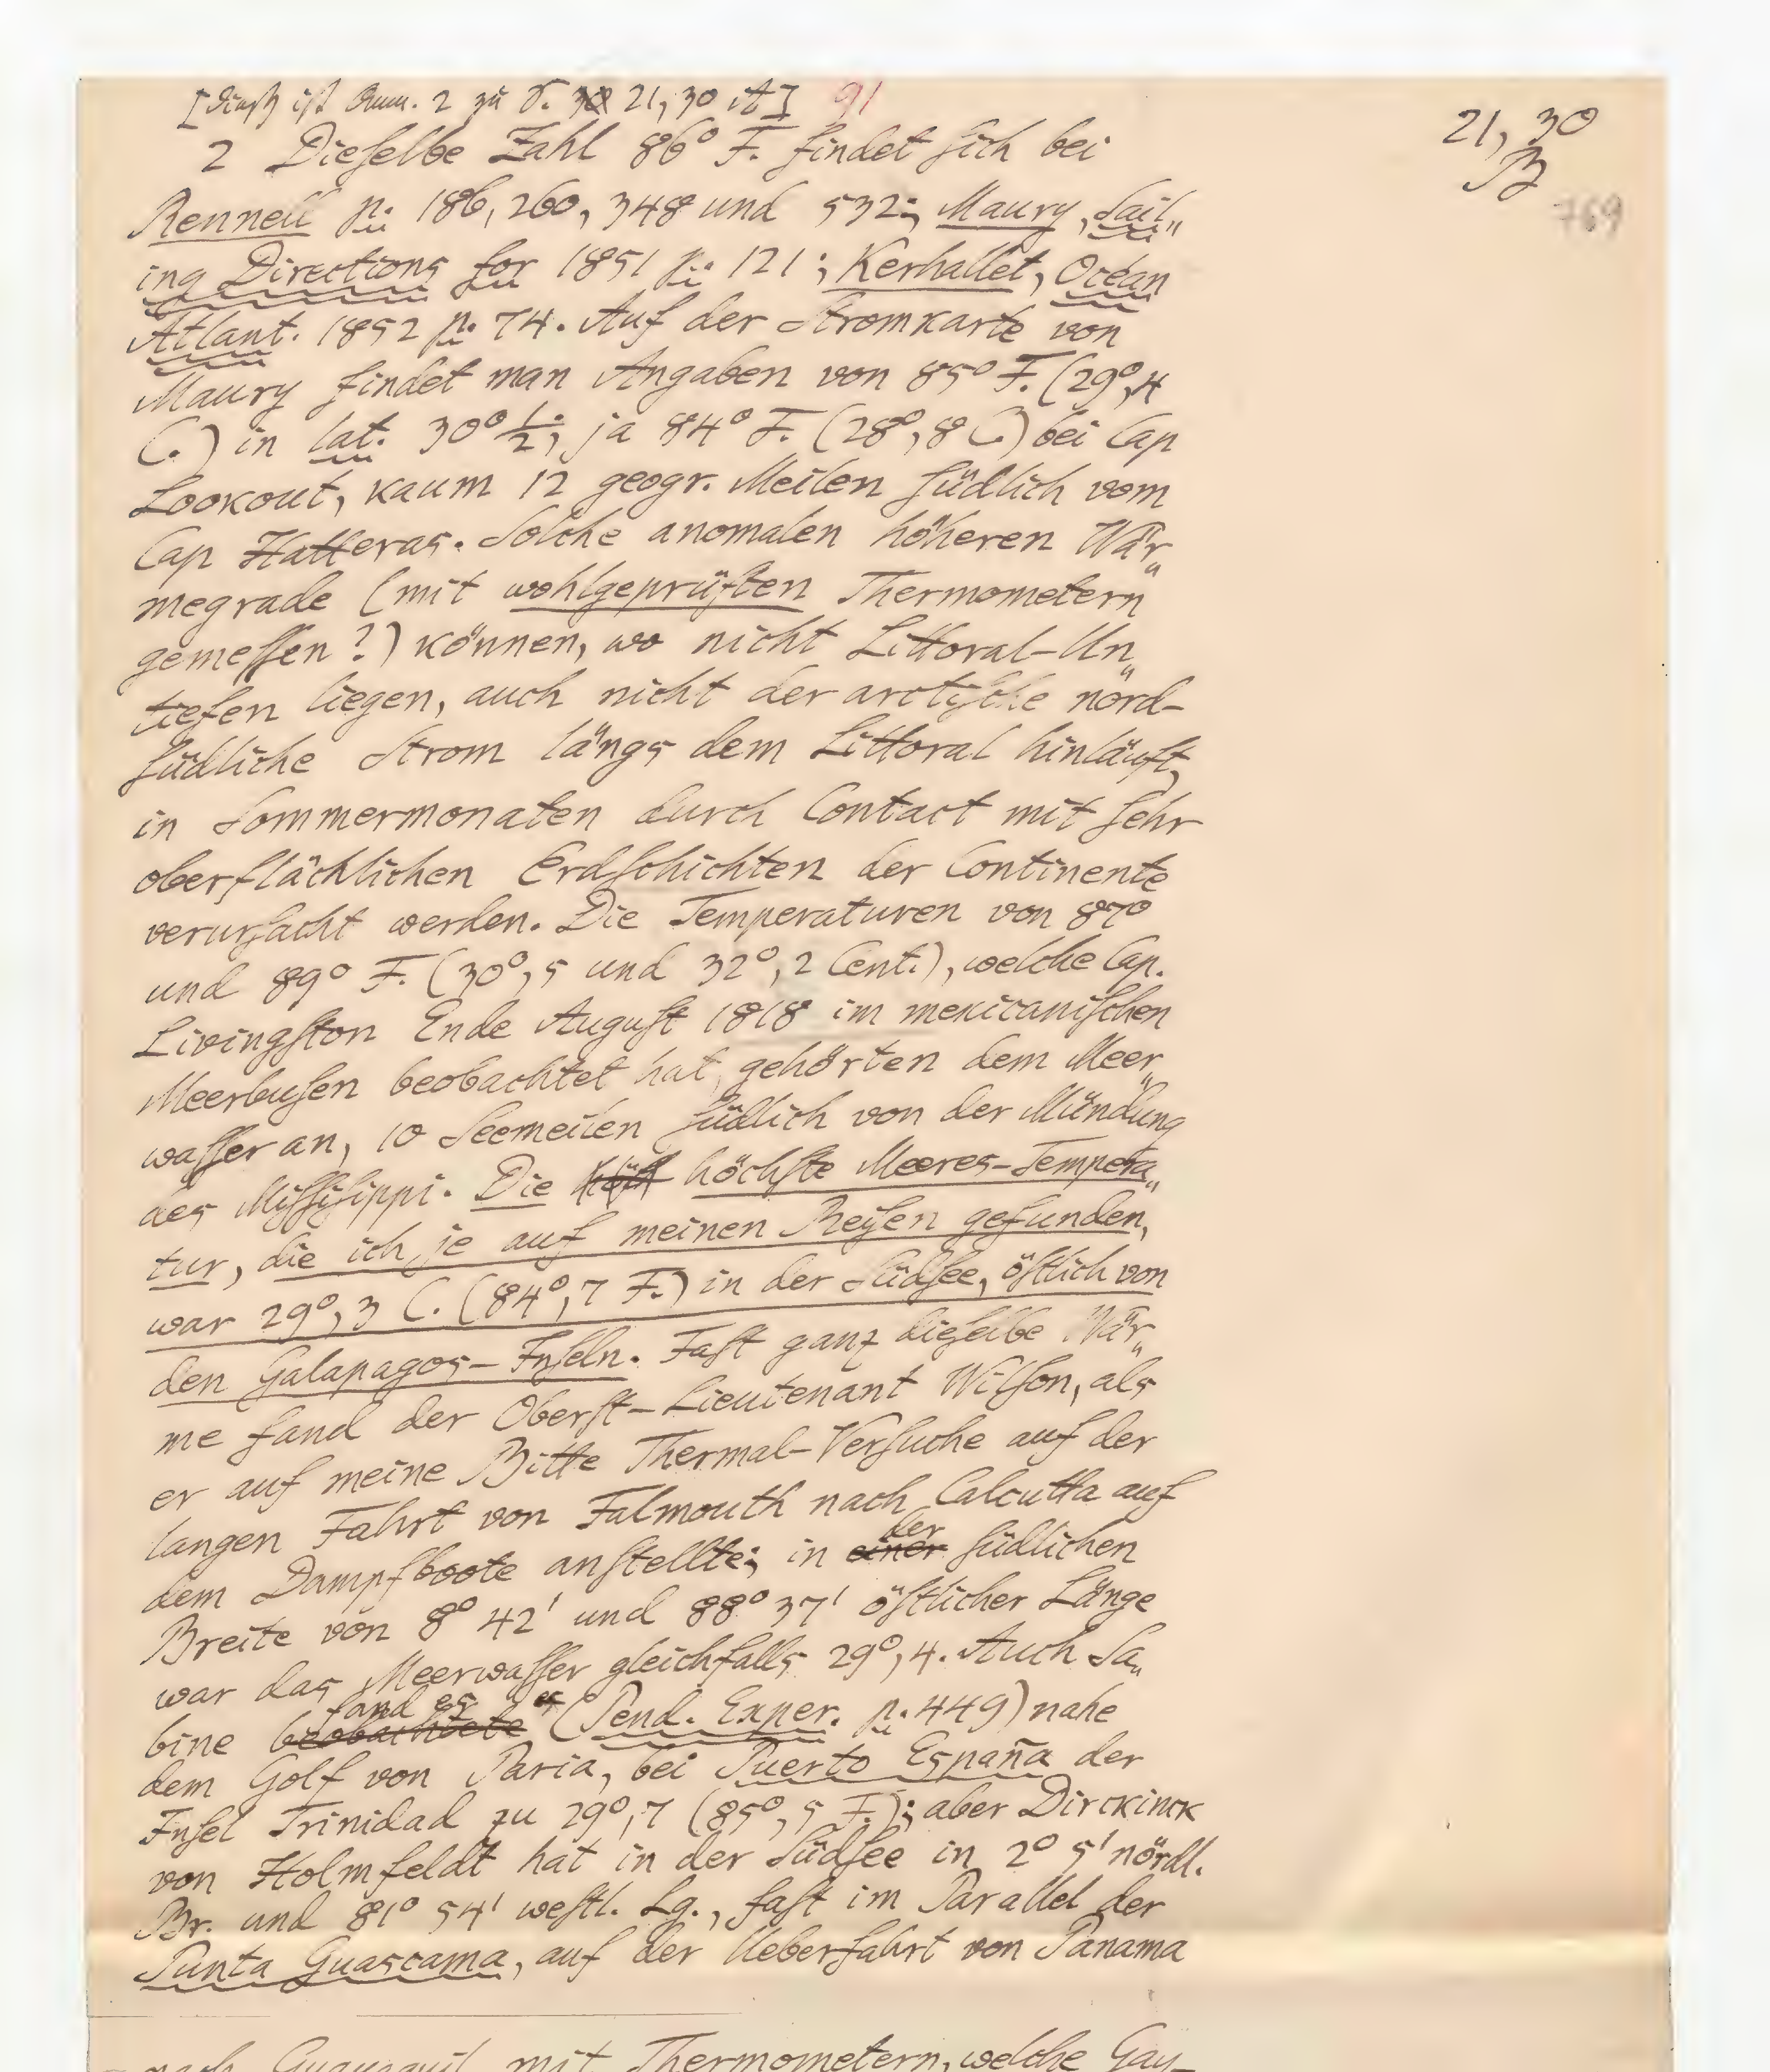 [dieß ist Anm. 2 zu S. 21, 30 it] 91
21, 30
B
769
2 Dieselbe Zahl 86° F. findet sich bei
Rennell p. 186, 260, 348 und 532; Maury, Sail„
ing Directions for 1851 p. 121; Kerhallet, Océan
Atlant. 1852 p. 74. Auf der Stromkarte von
Maury findet man Angaben von 85° F. (29°,4
C.) in lat. 30° 1/2, ja 84° F. (28°,8 C.) bei Cap
Lookout, kaum 12 geogr. Meilen südlich vom
Cap Hatteras. Solche anomalen höheren Wär„
megrade (mit wohlgeprüften Thermometern
gemessen?) können, wo nicht Littoral-Un„
tiefen liegen, auch nicht der arctische nord-
südliche Strom längs dem Littoral hinläuft,
in Sommermonaten durch Contact mit sehr
oberflächlichen Erdschichten der Continente
verursacht werden. Die Temperaturen von 87°
und 89° F. (30°,5 und 32°,2 Cent.), welche Cap.
Livingston Ende August 1818 im mexicanischen
Meerbusen beobachtet hat, gehörten dem Meer„
wasser an, 10 Seemeilen südlich von der Mündung
des Missisippi. Die höchste Meeres-Tempera„
tur, die ich je auf meinen Reisen gefunden,
war 29°,3 C. (84°,7 F.) in der Südsee, östlich von
den Galapagos-Inseln. Fast ganz dieselbe Wär„
me fand der Oberst-Lieutenant Wilson, als
er auf meine Bitte Thermal-Versuche auf der
langen Fahrt von Falmouth nach Calcutta auf
dem Dampfboote anstellte; in einer der südlichen
Breite von 8° 42' und 88° 37' östlicher Länge
war das Meerwasser gleichfalls 29°,4. Auch Sa„
bine beobachtete fand es (Pend. Exper. p. 449) nahe
dem Golf von Paria, bei Puerto España der
Insel Trinidad zu 29°,7 (85°,5 F.); aber Dirckinck
von Holmfeldt hat in der Südsee in 2° 5' nördl.
Br. und 81° 54' westl. Lg., fast im Parallel der
Punta Guascama, auf der Ueberfahrt von Panama
nach Guayaquil mit Thermometern, welche Gay-